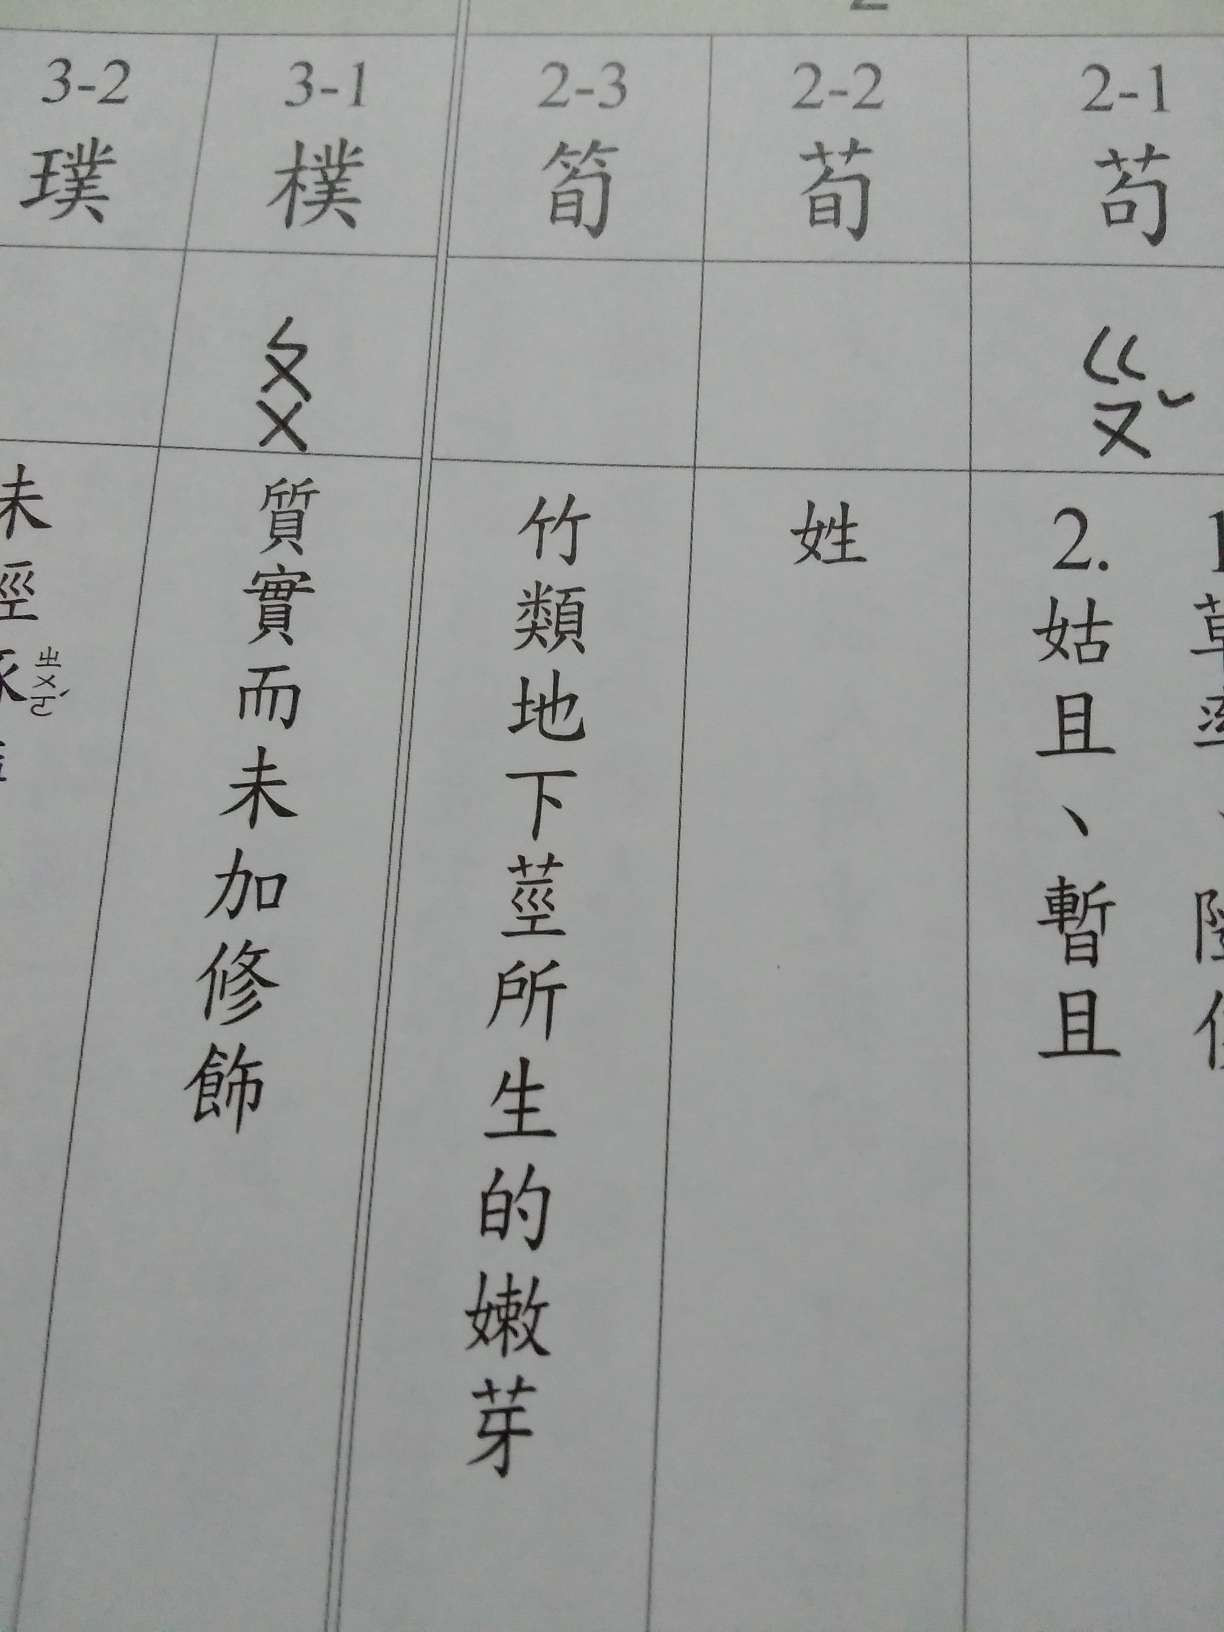 2-1
苟
ㄍㄡˇ
2.姑且、暫且
2-2
荀
姓
2-3
筍
竹類地下莖所生的嫩芽
3-1
樸
ㄆㄨ
質實而未加修飾
3-2
璞
未經
ㄓㄨㄛˊ